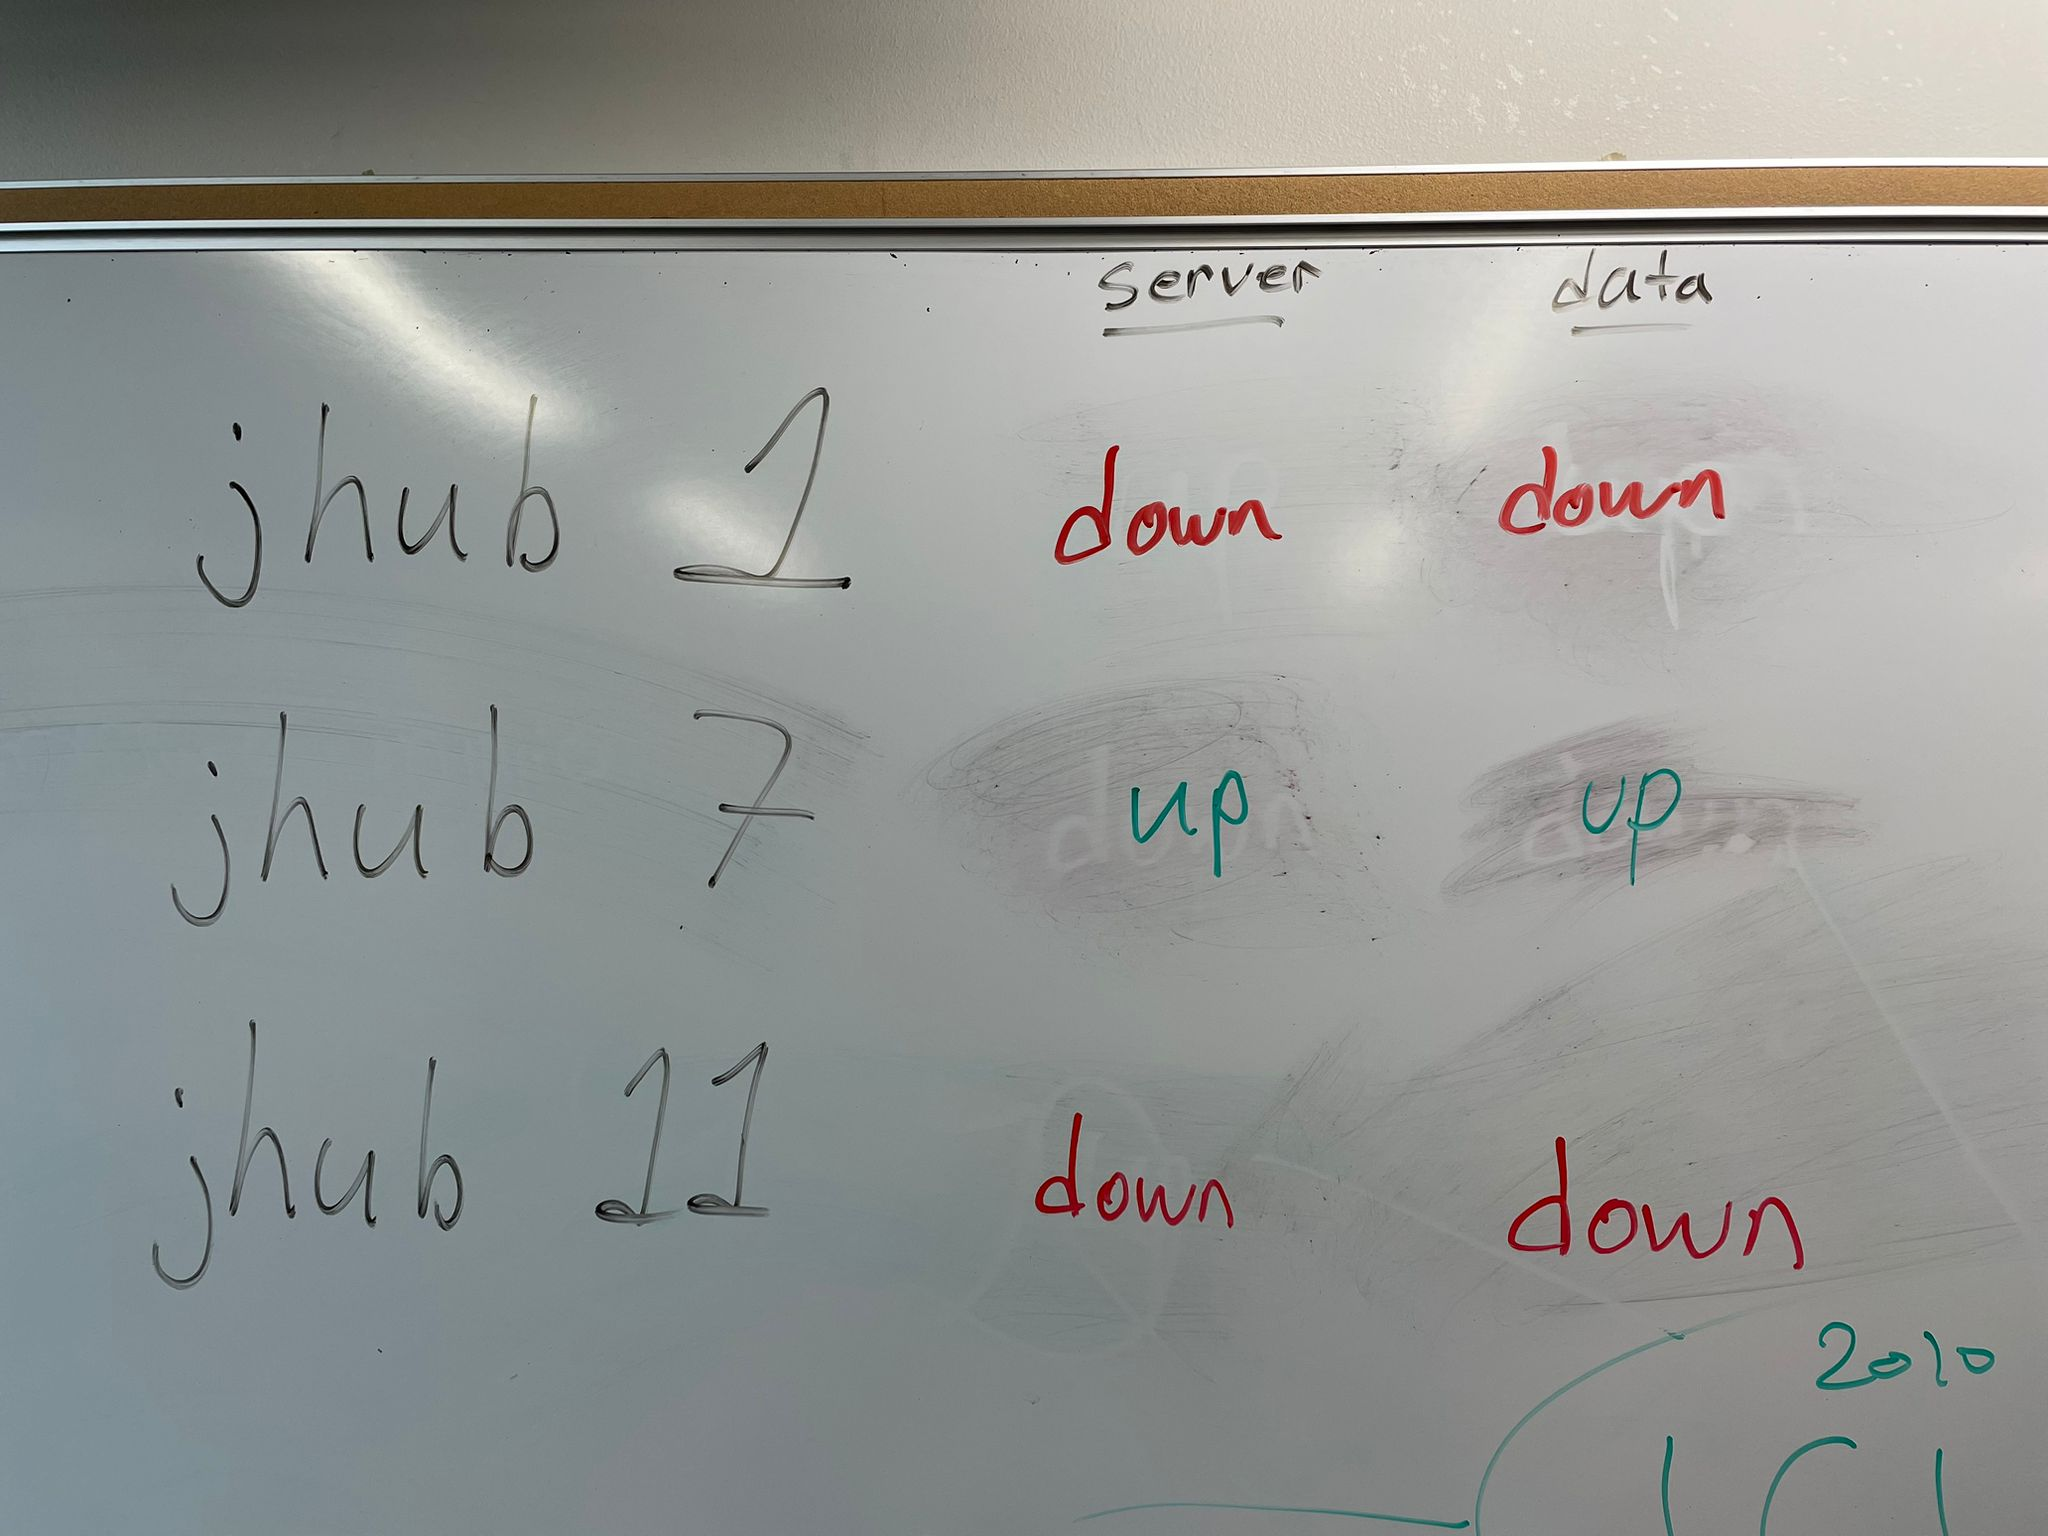 server data
jhub 1 down down
jhub 7 up up
jhub 11 down down
2010